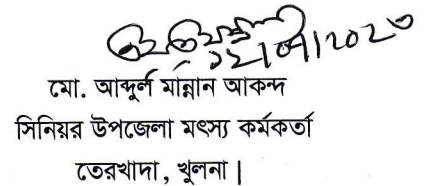 মো. আব্দুর্ল মান্নান আকন্দ
সিনিয়র উপজেলা মৎস্য কর্মকর্তা
তেরখাদা, খুলনা |